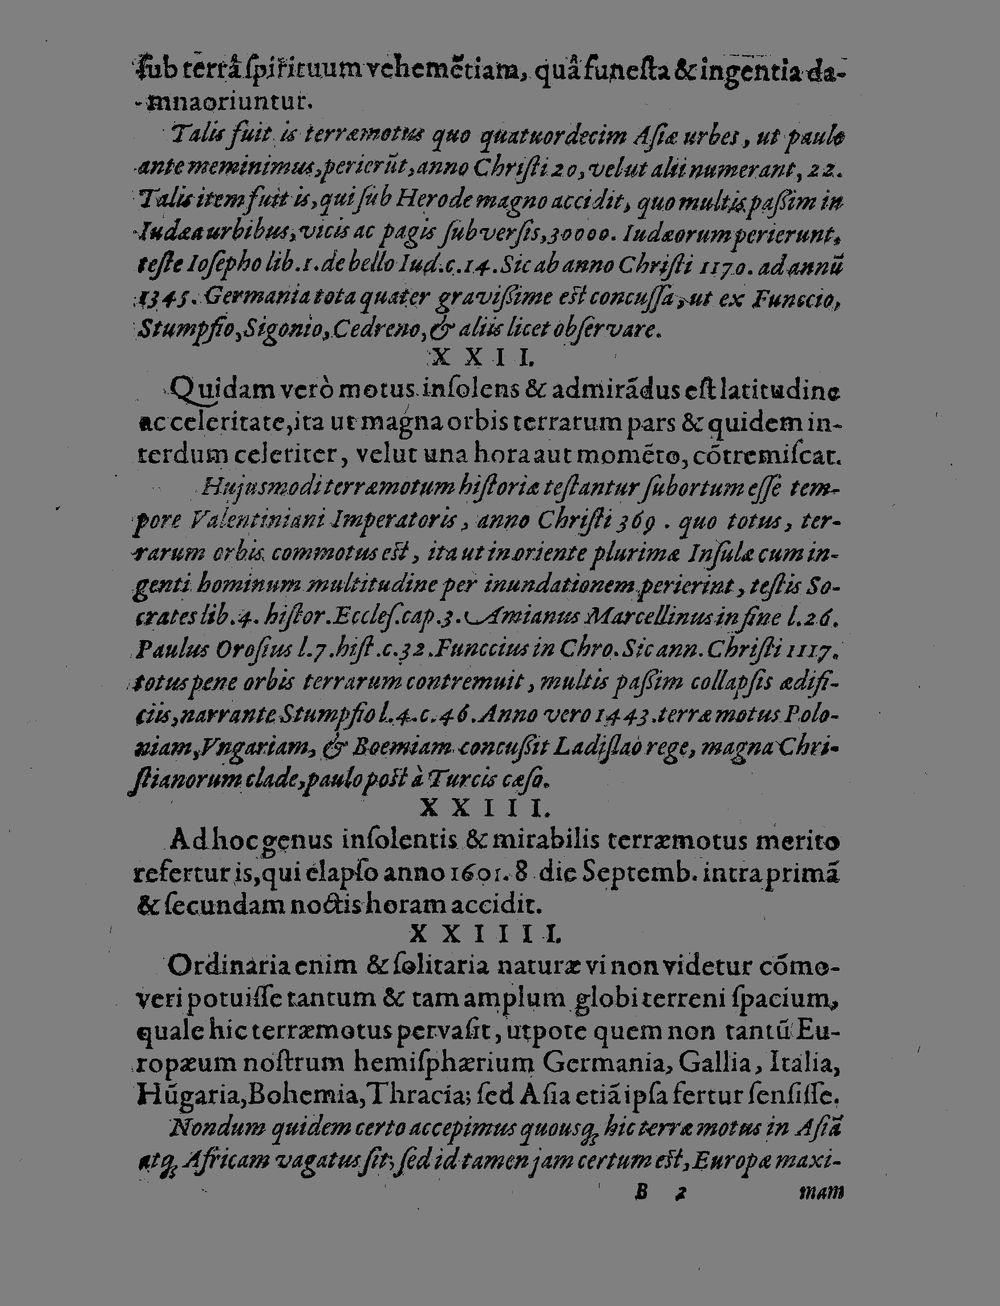 ſub terrâ ſpirituum vehemẽtiam, quâ funeſta & ingentia da-
mna oriuntur.
Talis fuit is terræmotus quo quatuordecim Aſiæ urbes, ut paulo
ante meminimus, perierũt, anno Chriſti 20, velut alii numerant, 22.
Talis item fuit is, qui ſub Herode magno accidit, quo multis paßim in
Iudæa urbibus, vicis ac pagis ſubverſis, 30000. Iudæorum perierunt,
teſte Ioſepho lib. 1. de bello Iud. c. 14. Sic ab anno Chriſti 1170. ad annũ
1345. Germania tota quater gravißime eſt concuſſa, ut ex Funccio,
Stumpfio, Sigonio, Cedreno, & aliis licet obſervare.
X X I I.
Quidam verò motus inſolens & admirãdus eſt latitudine
ac celeritate, ita ut magna orbis terrarum pars & quidem in-
terdum celeriter, velut una hora aut momẽto, cõtremiſcat.
Hujusmodi terræmotum hiſtoriæ teſtantur ſubortum eſſe tem-
pore Valentiniani Imperatoris, anno Chriſti 369. quo totus, ter-
rarum orbis commotus eſt, ita ut in oriente plurimæ Inſulæ cum in-
genti hominum multitudine per inundationem perierint, teſtis So-
crates lib. 4. hiſtor. Eccleſ. cap. 3. Amianus Marcellinus in fine l. 26.
Paulus Oroſius l. 7. hiſt. c. 32. Funccius in Chro. Sic ann. Chriſti 1117.
totus pene orbis terrarum contremuit, multis paßim collapſis ædifi-
ciis, narrante Stumpfio l. 4. c. 46. Anno vero 1443. terræ motus Polo-
niam, Vngariam, & Boemiam concußit Ladiſlao rege, magna Chri-
ſtianorum clade, paulo poſt à Turcis cæſo.
X X I I I.
Ad hoc genus inſolentis & mirabilis terræmotus merito
refertur is, qui elapſo anno 1601. 8 die Septemb. intra primã
& ſecundam noctis horam accidit.
X X I I I I.
Ordinaria enim & ſolitaria naturæ vi non videtur cõmo-
veri potuiſſe tantum & tam amplum globi terreni ſpacium,
quale hic terræmotus pervaſit, utpote quem non tantũ Eu-
ropæum noſtrum hemiſphærium Germania, Gallia, Italia,
Hũgaria, Bohemia, Thracia; ſed Aſia etiã ipſa fertur ſenſiſſe.
Nondum quidem certo accepimus quousq; hic terræ motus in Aſiã
atq; Africam vagatus ſit; ſed id tamen jam certum eſt, Europæ maxi-
B 2 mam